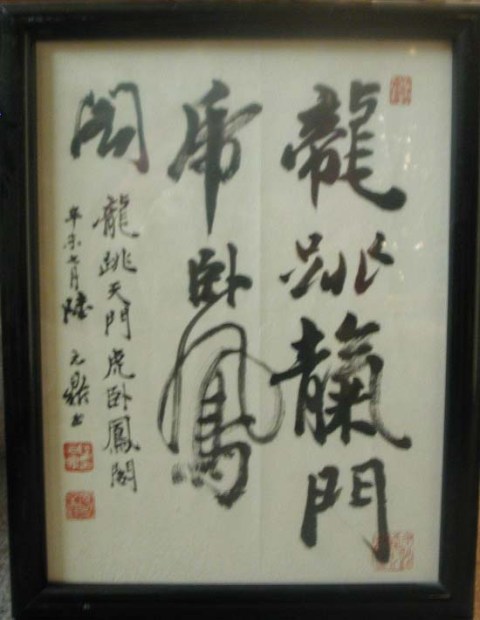 龍跳靝門
虎卧鳳
閣
龍跳天門虎卧鳳閣
辛未七月陸元鼎書